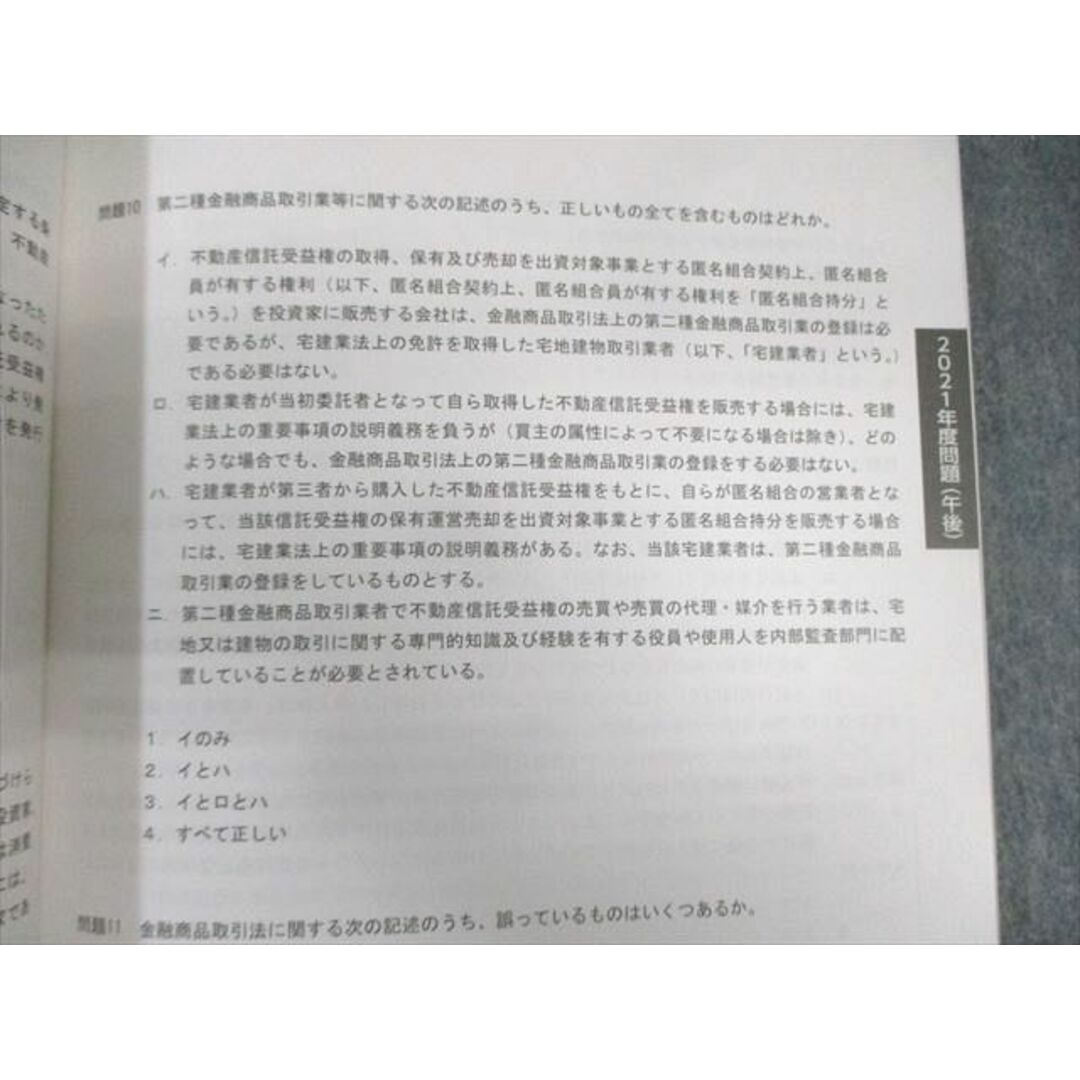 定する条
不動産
なったた
るのか
受益権
より発
を発行
問題10 第二種金融商品取引業等に関する次の記述のうち、正しいもの全てを含むものはどれか。
イ. 不動産信託受益権の取得、保有及び売却を出資対象事業とする匿名組合契約上、匿名組合
員が有する権利（以下、匿名組合契約上、匿名組合員が有する権利を「匿名組合持分」と
いう。）を投資家に販売する会社は、金融商品取引法上の第二種金融商品取引業の登録は必
要であるが、宅建業法上の免許を取得した宅地建物取引業者（以下、「宅建業者」という。）
である必要はない。
ロ. 宅建業者が当初委託者となって自ら取得した不動産信託受益権を販売する場合には、宅建
業法上の重要事項の説明義務を負うが（買主の属性によって不要になる場合は除き）、どの
ような場合でも、金融商品取引法上の第二種金融商品取引業の登録をする必要はない。
ハ. 宅建業者が第三者から購入した不動産信託受益権をもとに、自らが匿名組合の営業者とな
って、当該信託受益権の保有運営売却を出資対象事業とする匿名組合持分を販売する場合
には、宅建業法上の重要事項の説明義務がある。なお、当該宅建業者は、第二種金融商品
取引業の登録をしているものとする。
ニ. 第二種金融商品取引業者で不動産信託受益権の売買や売買の代理・媒介を行う業者は、宅
地又は建物の取引に関する専門的知識及び経験を有する役員や使用人を内部監査部門に配
置していることが必要とされている。
1. イのみ
2. イとハ
3. イとロとハ
4. すべて正しい
問題11 金融商品取引法に関する次の記述のうち、誤っているものはいくつあるか。
2021年度問題（午後）
づけら
投資家
は消費
とは、
であ